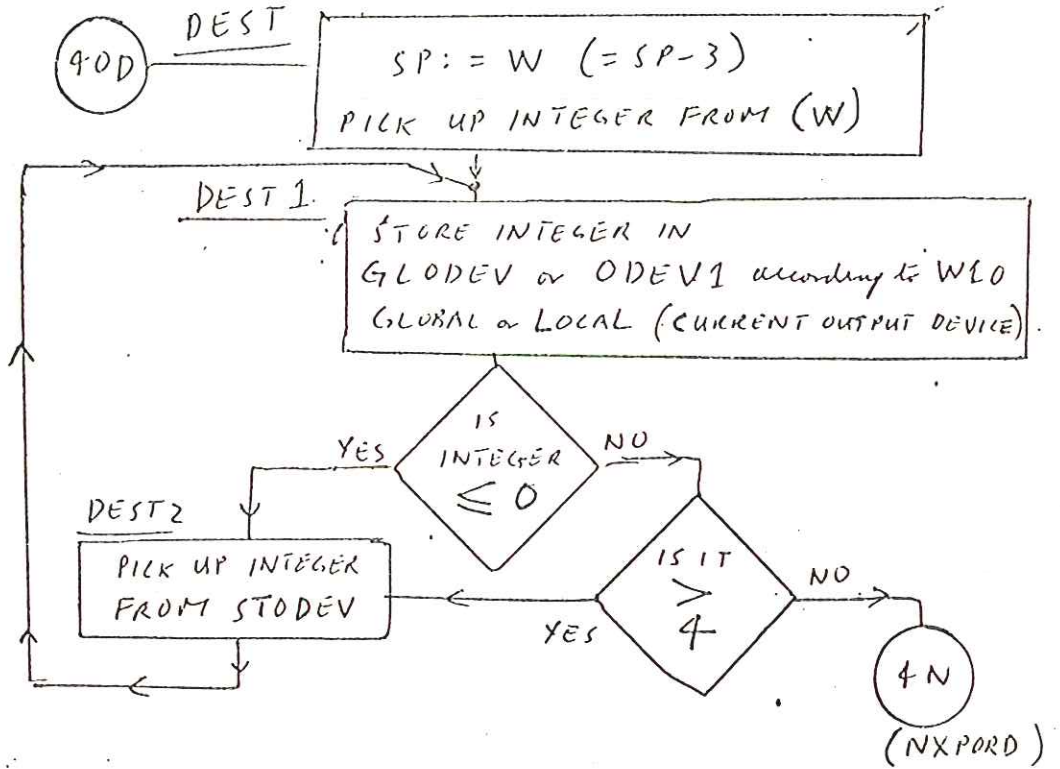 DEST
40D
SP:= W (=SP-3)
PICK UP INTEGER FROM (W)
DEST 1.
STORE INTEGER IN
GLODEV or ODEV1 according to W10
GLOBAL or LOCAL (CURRENT OUTPUT DEVICE).
IS
INTEGER
≤ 0
YES
NO
DEST2
PICK UP INTEGER
FROM STODEV
IS IT
>
4
YES
NO
4N
(NXPORD)